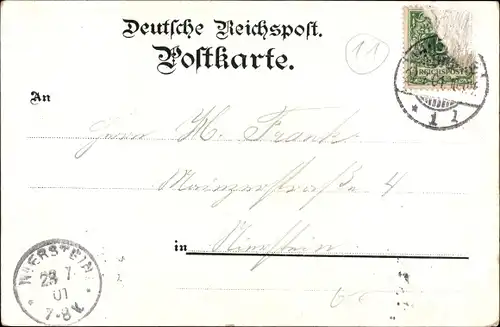 Deutsche Reichspost.
Postkarte.
11
REICHSPOST
* 1 1
An
Herrn H. Frank
Mainzerstraße 4
in Nierstein
NIERSTEIN
23 7
01
7-8V.